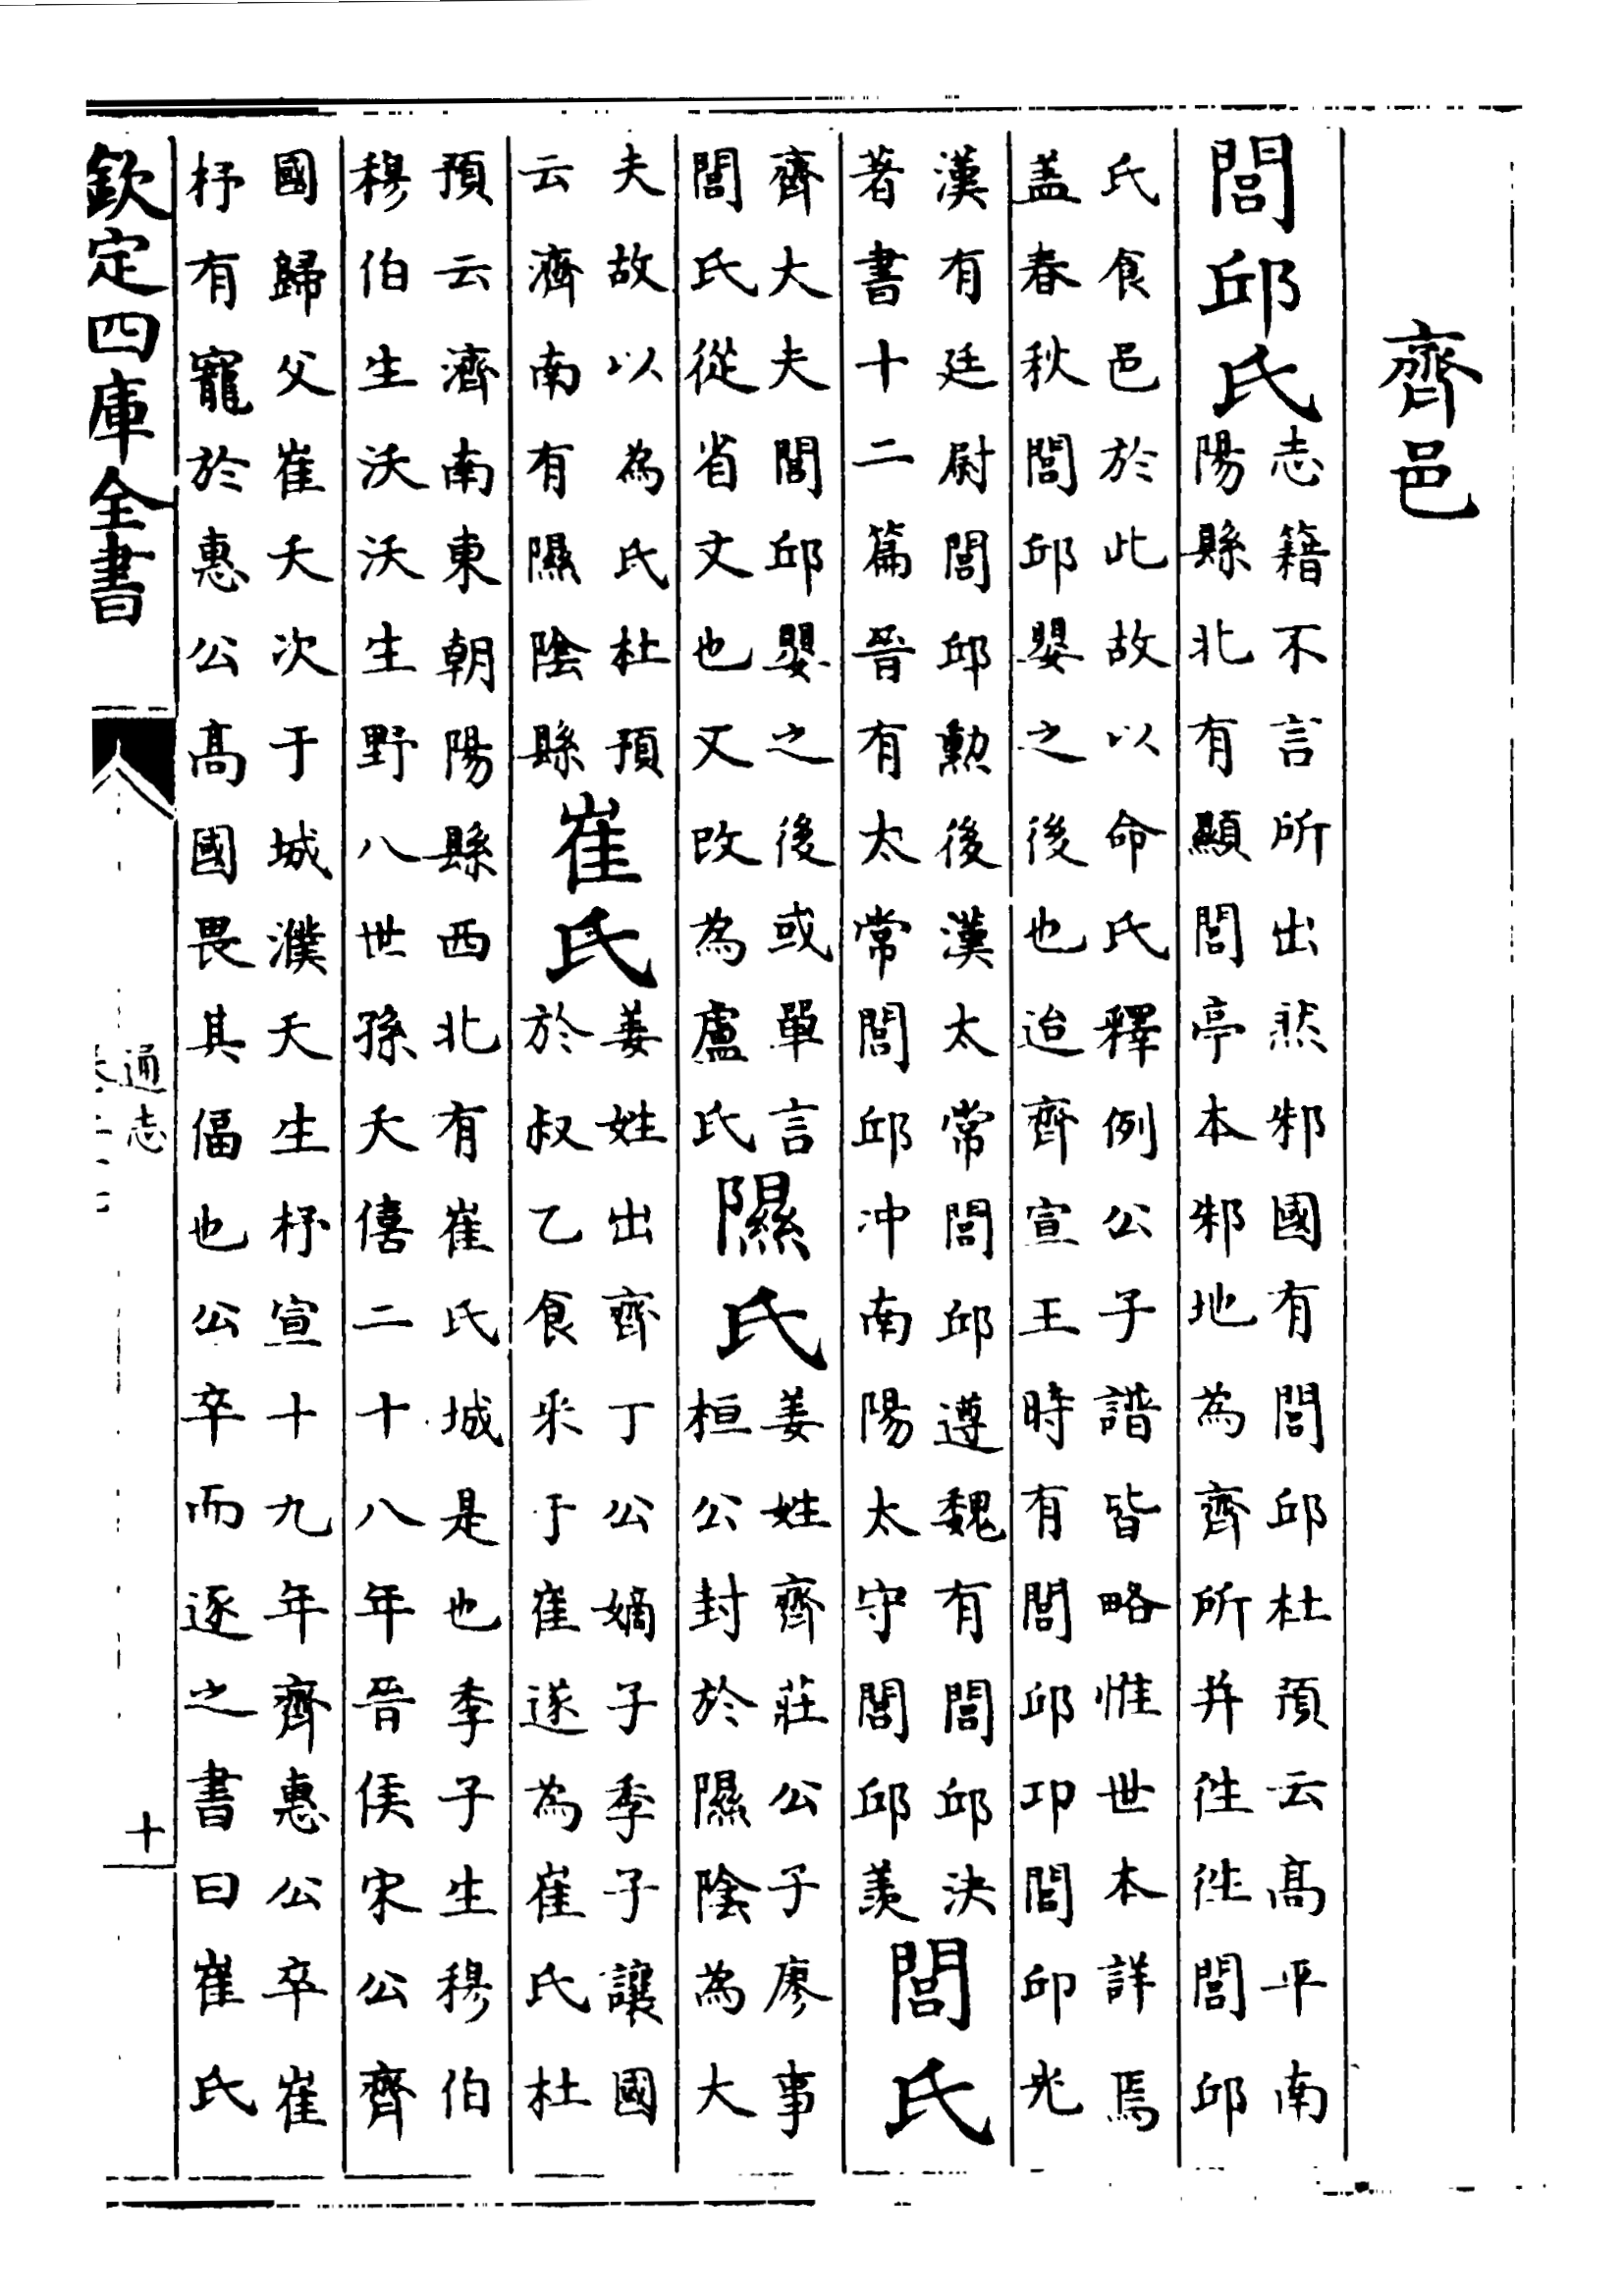 齊邑
閭邱氏
志籍不言所出然邾國有閭邱杜預云高平南
陽縣北有顯閭亭本邾地為齊所并往往閭邱
氏食邑於此故以命氏釋例公子譜皆略惟世本詳焉
盖春秋閭邱嬰之後也迨齊宣王時有閭邱卭閭邱光
漢有廷尉閭邱勲後漢太常閭邱遵魏有閭邱決
著書十二篇晉有太常閭邱冲南陽太守閭邱羨
閭氏
齊大夫閭邱嬰之後或單言
閭氏從省文也又改為盧氏
隰氏
姜姓齊莊公子廖事
桓公封於隰陰為大
夫故以為氏杜預
云濟南有隰陰縣
崔氏
姜姓出齊丁公嫡子季子讓國
於叔乙食采于崔遂為崔氏杜
預云濟南東朝陽縣西北有崔氏城是也李子生穆伯
穆伯生沃沃生野八世孫夭僖二十八年晉侯宋公齊
國歸父崔夭次于城濮夭生杼宣十九年齊惠公卒崔
杼有寵於惠公高國畏其偪也公卒而逐之書曰崔氏
欽定四庫全書
通志
十